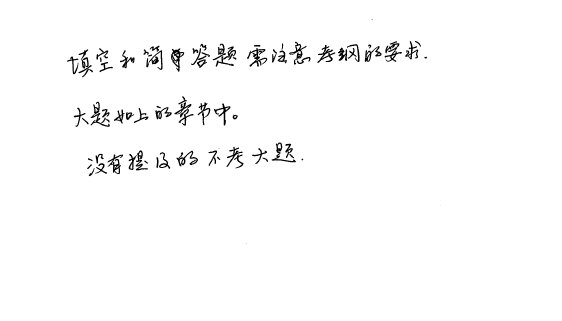 填空和简答题需注意考纲的要求.
大题如上的章节中。
没有提及的不考大题.